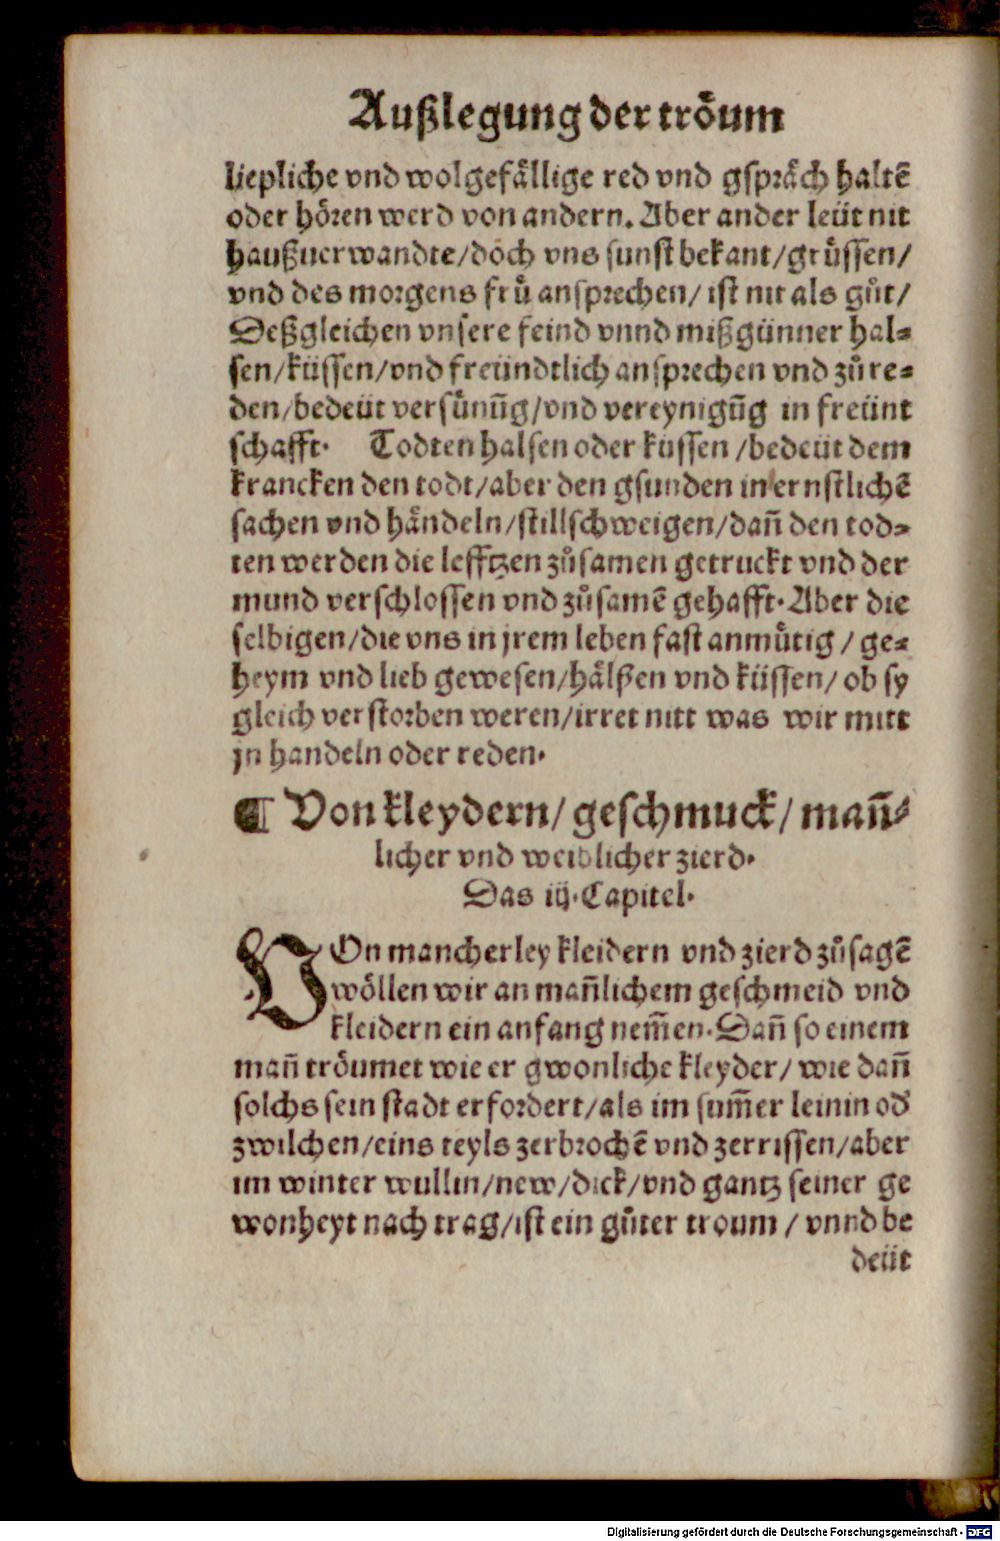 Außlegung der troͤum
liepliche vnd wolgefaͤllige red vnd gspraͤch haltē
oder hoͤren werd von andern. Aber ander leüt nit
haußuerwandte/doch vns sunst bekant/gruͤssen/
vnd des morgens fruͤ ansprechen/ ist nit als guͦt/
Deßgleichen vnsere feind vnnd mißgünner hal⸗
sen/küssen/vnd freündtlich ansprechen vnd zuͦre⸗
den/bedeüt versuͤnūg/vnd vereynigūg in freünt
schafft. Todten halsen oder küssen /bedeüt dem
krancken den todt/aber den gsunden in ernstlichē
sachen vnd haͤndeln/stillschweigen/dañ den tod⸗
ten werden die lefftzen zuͦsamen getruckt vnd der
mund verschlossen vnd zuͦsamē gehafft. Aber die
selbigen/die vns in jrem leben fast anmuͤtig / ge⸗
heym vnd lieb gewesen/haͤlßen vnd küssen/ ob sy
gleich verstorben weren/irret nitt was wir mitt
jn handeln oder reden.
¶ Von kleydern/ geschmuck/ mañ⸗
licher vnd weiblicher zierd.
Das iij. Capitel.
VOn mancherley kleidern vnd zierd zuͦsagē
woͤllen wir an mañlichem geschmeid vnd
kleidern ein anfang nem̄en. Dañ so einem
mañ troͤumet wie er gwonliche kleyder/ wie dañ
solchs sein stadt erfordert/als im sum̄er leinin od̕
zwilchen/eins teyls zerbrochē vnd zerrissen/aber
im winter wullin/new/dick/vnd gantz seiner ge
wonheyt nach trag/ist ein guͦter troum / vnnd be
deüt
Digitalisierung gefördert durch die Deutsche Forschungsgemeinschaft - DFG